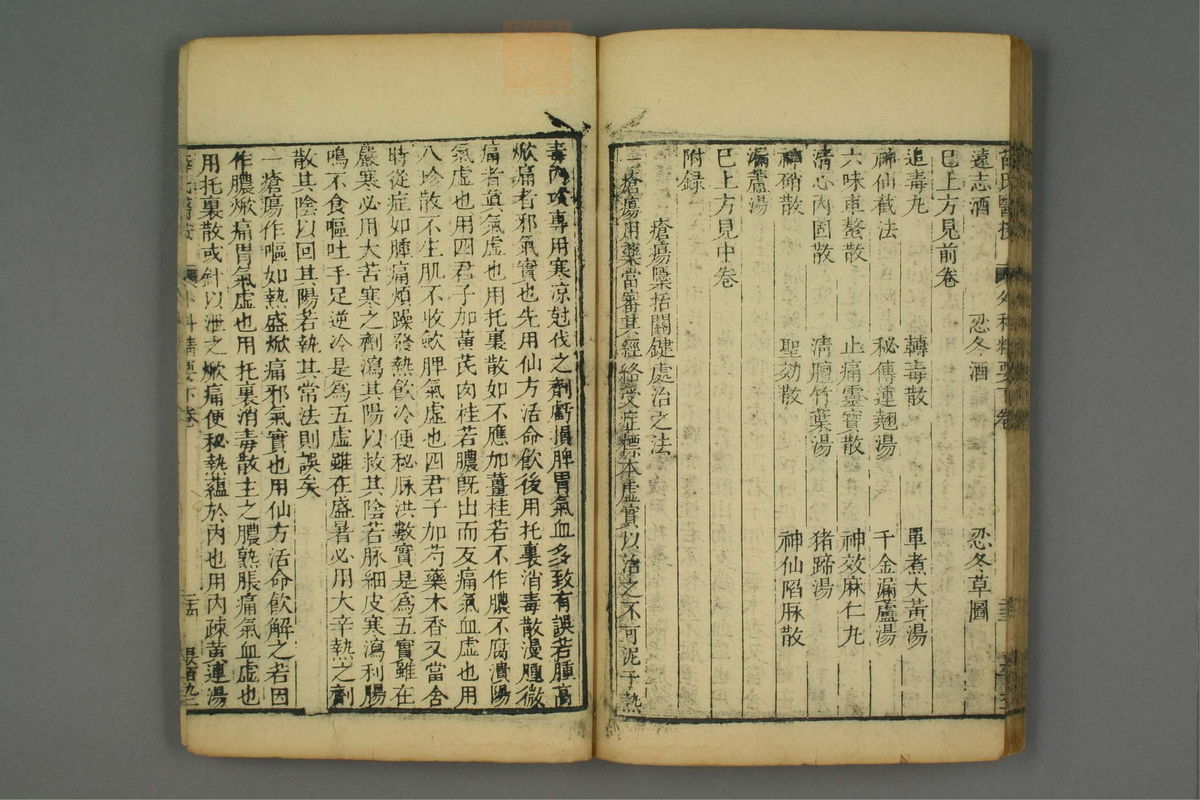 薛氏醫按 外科精要下卷
遠志酒 忍冬酒 忍冬草圖
已上方見前卷
追毒丸 轉毒散 單煮大黃湯
神仙截法 秘傳連翹湯 千金漏蘆湯
六味車螯散 止痛靈寶散 神效麻仁丸
清心內固散 清膻竹葉湯 猪蹄湯
神硝散 聖効散 神仙陷脉散
漏蘆湯
已上方見中卷
附録
瘡瘍隱括關鍵處治之法
一瘡瘍用藥當審其經絡受症標本虛實以治之不可泥于熱
毒內攻專用寒凉尅伐之劑虧損脾胃氣血多致有誤若腫高
焮痛者邪氣實也先用仙方活命飲後用托裏消毒散漫腫微
痛者眞氣虛也用托裏散如不應加薑桂若不作膿不腐潰陽
氣虛也用四君子加黃芪肉桂若膿既出而反痛氣血虛也用
八珍散不生肌不收歛脾氣虛也四君子加芍藥木香又當舍
時從症如腫痛煩躁發熱飲冷便秘脉洪數實是爲五實雖在
嚴寒必用大苦寒之劑瀉其陽以救其陰若脉細皮寒瀉利腸
鳴不食嘔吐手足逆冷是爲五虛雖在盛暑必用大辛熱之劑
散其陰以回其陽若執其常法則誤矣
一瘡瘍作嘔如熱盛焮痛邪氣實也用仙方活命飲解之若因
作膿焮痛胃氣虛也用托裏消毒散主之膿熟脹痛氣血虛也
用托裏散或針以泄之焮痛便秘熱蘊於內也用內疎黃連湯
薛氏醫按 外科精要下卷